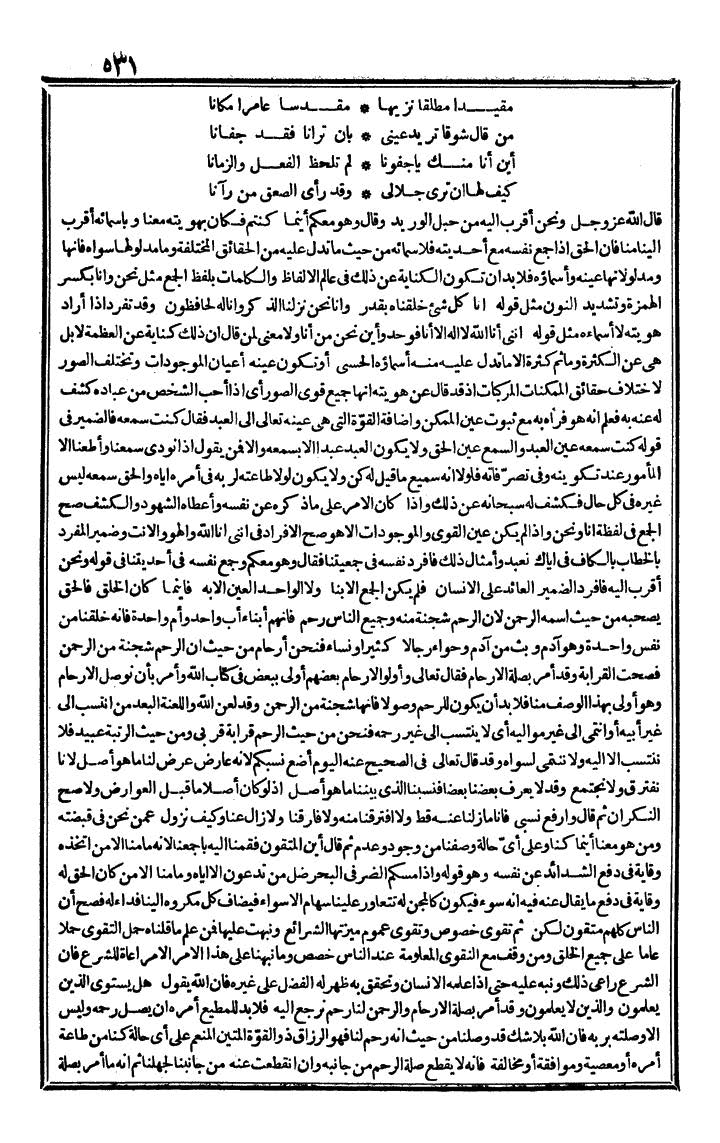 ٥٣١
مقيدا مطلقا نزيها * مقدسا عامرا مكانا
من قال شوقا تريد عيني * بان ترانا فقد جفانا
أين أنا منك ياجفونا * لم تلحظ الفعل والزمانا
كيف لها ان ترى جلالى * وقد رأى الصعق من رآنا
قال الله عز وجل ونحن أقرب اليه من حبل الوريد وقال وهو معكم أينما كنتم فكان بهويته معنا وباسمائه أقرب
الينا منا فان الحق اذا جمع نفسه مع أحديته فلاسمائه من حيث ما تدل عليه من الحقائق المختلفة وما مدلولها سواه فانها
ومدلولاتها عينه وأسماؤه فلابد أن تكون الكناية عن ذلك فى عالم الالفاظ والكلمات بلفظ الجمع مثل نحن وانا بكسر
الهمزة وتشديد النون مثل قوله انا كل شئ خلقناه بقدر وانا نحن نزلنا الذكر وانا له لحافظون وقد تفرد اذا أراد
هويته لا أسماءه مثل قوله اننى أنا الله لا اله الا أنا فوحد وأين نحن من أنا ولا معنى لمن قال ان ذلك كناية عن العظمة لا بل
هى عن الكثرة وما ثم كثرة الا ما تدل عليه منه أسماؤه الحسنى أو تكون عينه أعيان الموجودات وتختلف الصور
لاختلاف حقائق الممكنات المركبات اذ قد قال عن هويته انها جميع قوى الصور أى اذا أحب الشخص من عباده كشف
له عنه به فعلم انه هو فرآه به مع ثبوت عين الممكن واضافة القوة التى هى عينه تعالى الى العبد فقال كنت سمعه فالضمير فى
قوله كنت سمعه عين العبد والسمع عين الحق ولا يكون العبد عبدا الا بسمعه والا فن يقول اذا نودى سمعنا وأطعنا الا
المأمور عند تكوينه وفى تصرّفاته فلولا انه سميع ما قيل له كن ولا يكون لولا طاعته لربه فى أمره اياه والحق سمعه ليس
غيره فى كل حال فكشف له سبحانه عن ذلك واذا كان الامر على ما ذكره عن نفسه وأعطاه الشهود والكشف صح
الجمع فى لفظة انا ونحن واذ لم يكن عين القوى والموجودات الا هو صح الافراد فى اننى انا الله والهو والانت وضمير المفرد
بالخطاب بالكاف فى اياك نعبد وأمثال ذلك فافرد نفسه فى جمعيتنا فقال وهو معكم وجمع نفسه فى أحديتنا فى قوله ونحن
أقرب اليه فافرد الضمير العائد على الانسان فلم يكن الجمع الا بنا ولا الواحد العين الا به فاينما كان الخلق فالحق
يصحبه من حيث اسمه الرحمن لان الرحم شجنة منه وجميع الناس رحم فانهم أبناء أب واحد وأم واحدة فانه خلقنا من
نفس واحدة وهو آدم وبث من آدم وحواء رجالا كثيرا ونساء فنحن أرحام من حيث ان الرحم شجنة من الرحمن
فصحت القرابة وقد أمر بصلة الارحام فقال تعالى وأولوا الارحام بعضهم أولى ببعض فى كتاب الله وأمر بأن نوصل الارحام
وهو أولى بهذا الوصف منا فلابد أن يكون للرحم وصولا فانها شجنة من الرحمن وقد لعن الله واللعنة البعد من انتسب الى
غير أبيه أو انتمى الى غير مواليه أى لا ينتسب الى غير رحمه فنحن من حيث الرحم قرابة قربى ومن حيث الرتبة عبيد فلا
ننتسب الا اليه ولا ننتمى لسواه وقد قال تعالى فى الصحيح عنه اليوم أضع نسبكم لانه عارض عرض لنا ما هو أصل لانا
نفترق ولا نجتمع وقد لا يعرف بعضنا بعضا فنسبنا الذى بيننا ما هو أصل اذ لو كان أصلا ما قبل العوارض ولا صح
النكران ثم قال وارفع نسبى فانا ما زلنا عنه قط ولا افترقنا منه ولا فارقنا ولا زال عنا وكيف نزول عمن نحن فى قبضته
ومن هو معنا أينما كنا وعلى أىّ حالة وصفنا من وجود وعدم ثم قال أين المتقون فقمنا اليه باجمعنا لانه ما منا الا من اتخذه
وقاية فى دفع الشدائد عن نفسه وهو قوله واذا مسكم الضر فى البحر ضل من تدعون الا اياه وما منا الا من كان الحق له
وقاية فى دفع ما يقال عنه فيه انه سوء فيكون كالمجن له تتعاور علينا سهام الاسواء فيضاف كل مكروه الينا فداء له فصح أن
الناس كلهم متقون لكن ثم تقوى خصوص وتقوى عموم ميزتها الشرائع ونبهت عليها فمن علم ما قلناه حمل التقوى حملا
عاما على جميع الخلق ومن وقف مع التقوى المعلومة عند الناس خصص وما نبهنا على هذا الامر الا مراعاة للشرع فان
الشرع راعى ذلك ونبه عليه حتى اذا علمه الانسان وتحقق به ظهر له الفضل على غيره فان الله يقول هل يستوى الذين
يعلمون والذين لا يعلمون وقد أمر بصلة الارحام والرحمن لنا رحم نرجع اليه فلابد للمطيع أمره ان يصل رحمه وليس
الا وصلته بربه فان الله بلا شك قد وصلنا من حيث انه رحم لنا فهو الرزاق ذو القوّة المتين المنعم على أى حالة كنا من طاعة
أمره أو معصية وموافقة أو مخالفة فانه لا يقطع صلة الرحم من جانبه وان انقطعت عنه من جانبنا لجهلنا ثم انه ما أمر بصلة